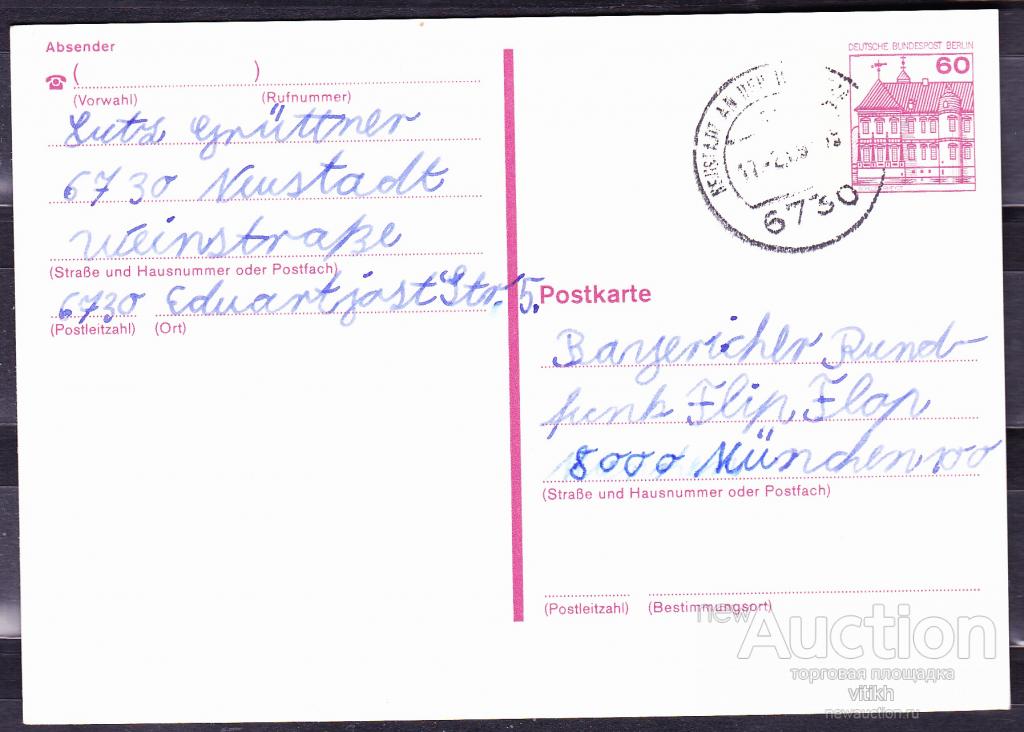 Absender
( )
(Vorwahl) (Rufnummer)
Lutz Grüttner
6730 Neustadt
Weinstraße
(Straße und Hausnummer oder Postfach)
6730 Eduartjost Str. 5.
(Postleitzahl) (Ort)
DEUTSCHE BUNDESPOST BERLIN
60
NEUSTADT AN DER
6730
Postkarte
Bayericher Rund-
funk Flip Flop
8000 München 100
(Straße und Hausnummer oder Postfach)
(Postleitzahl) (Bestimmungsort)
newAuction
торговая площадка
vitikh
newauction.ru